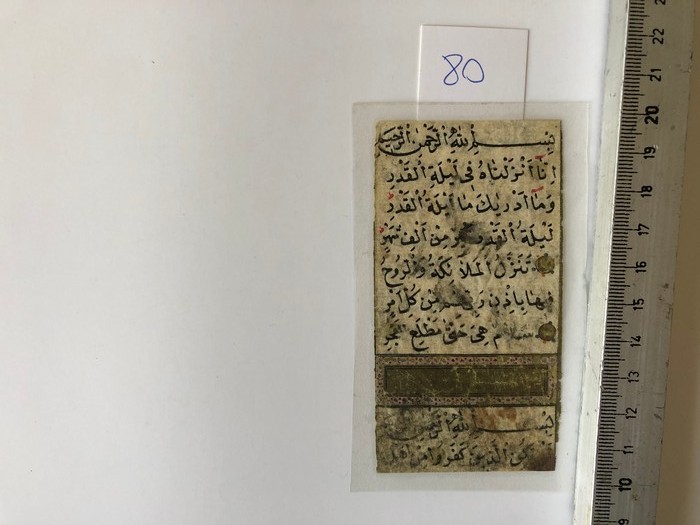 80
بِسْمِ اللّٰهِ الرَّحْمٰنِ الرَّحِيمِ
اِنَّا اَنْزَلْنَاهُ فِى لَيْلَةِ الْقَدْرِ
وَمَا اَدْرٰيكَ مَا لَيْلَةُ الْقَدْرِ
لَيْلَةُ الْقَدْرِ خَيْرٌ مِنْ اَلْفِ شَهْرٍ
تَنَزَّلُ الْمَلَائِكَةُ وَالرُّوحُ
فِيهَا بِاِذْنِ رَبِّهِمْ مِنْ كُلِّ اَمْرٍ
سَلَامٌ هِىَ حَتّٰى مَطْلَعِ الْفَجْرِ
بِسْمِ اللّٰهِ الرَّحْمٰنِ
الَّذِينَ كَفَرُوا مِنْ
22
21
20
19
18
17
16
15
14
13
12
11
10